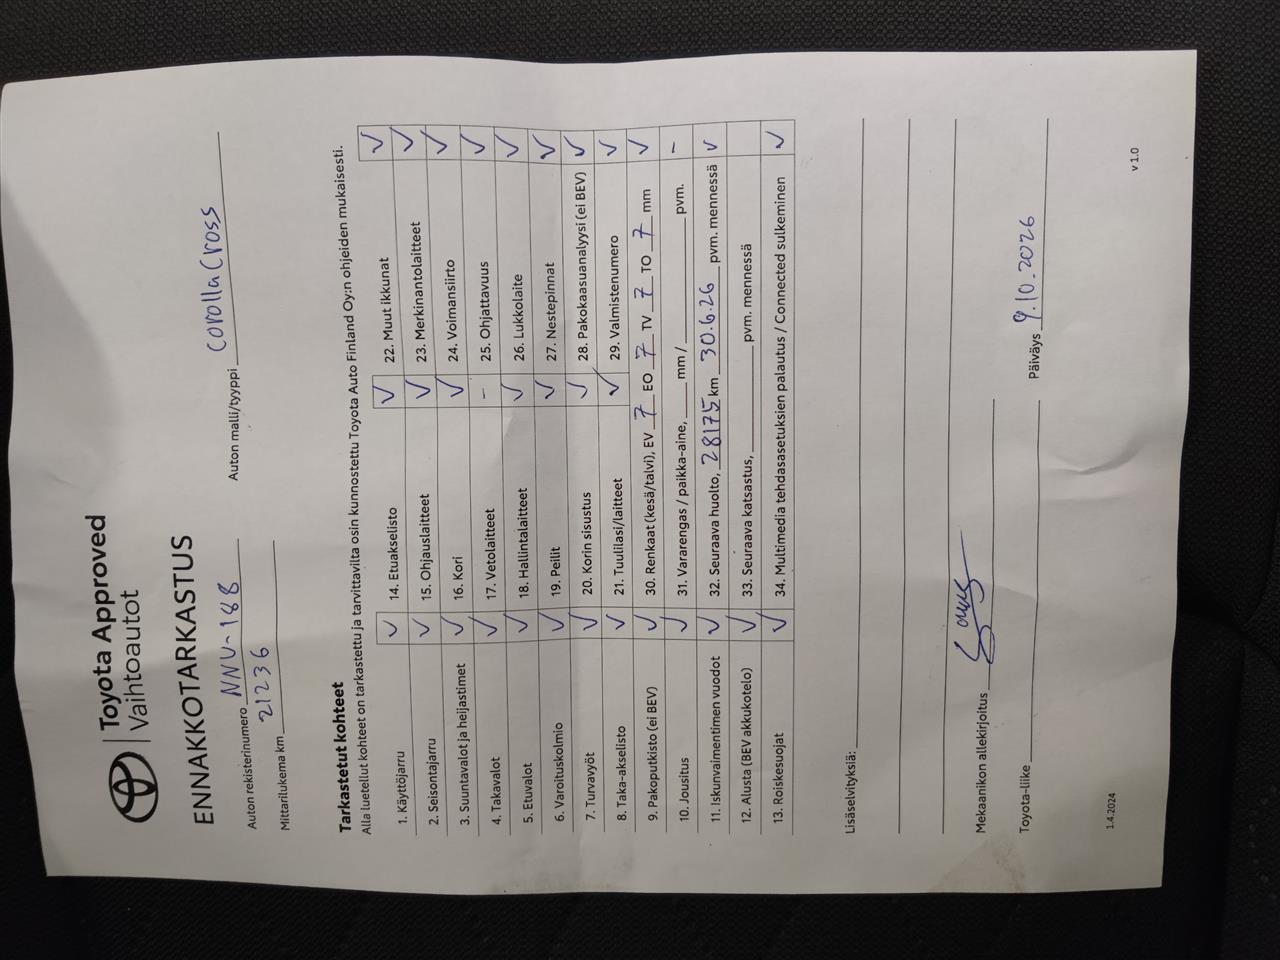 Toyota Approved
Vaihtoautot
ENNAKKOTARKASTUS
Auton rekisterinumero NNU-188 Auton malli/tyyppi Corolla Cross
Mittarilukema km 21236
Tarkastetut kohteet
Alla luetellut kohteet on tarkastettu ja tarvittavilta osin kunnostettu Toyota Auto Finland Oy:n ohjeiden mukaisesti.
1. Käyttöjarru ✓ 14. Etuakselisto ✓ 22. Muut ikkunat ✓
2. Seisontajarru ✓ 15. Ohjauslaitteet ✓ 23. Merkinantolaitteet ✓
3. Suuntavalot ja heijastimet ✓ 16. Kori ✓ 24. Voimansiirto ✓
4. Takavalot ✓ 17. Vetolaitteet - 25. Ohjattavuus ✓
5. Etuvalot ✓ 18. Hallintalaitteet ✓ 26. Lukkolaite ✓
6. Varoituskolmio ✓ 19. Peilit ✓ 27. Nestepinnat ✓
7. Turvavyöt ✓ 20. Korin sisustus ✓ 28. Pakokaasuanalyysi (ei BEV) ✓
8. Taka-akselisto ✓ 21. Tuulilasi/laitteet ✓ 29. Valmistenumero ✓
9. Pakoputkisto (ei BEV) ✓ 30. Renkaat (kesä/talvi), EV 7 EO 7 TV 7 TO 7 mm ✓
10. Jousitus ✓ 31. Vararengas / paikka-aine, mm / pvm. -
11. Iskunvaimentimen vuodot ✓ 32. Seuraava huolto, 28175 km 30.6.26 pvm. mennessä ✓
12. Alusta (BEV akkukotelo) ✓ 33. Seuraava katsastus, pvm. mennessä
13. Roiskesuojat ✓ 34. Multimedia tehdasasetuksien palautus / Connected sulkeminen ✓
Lisäselvityksiä:
Mekaanikon allekirjoitus
Toyota-liike Päiväys 9.10.2026
1.4.2024 v 1.0